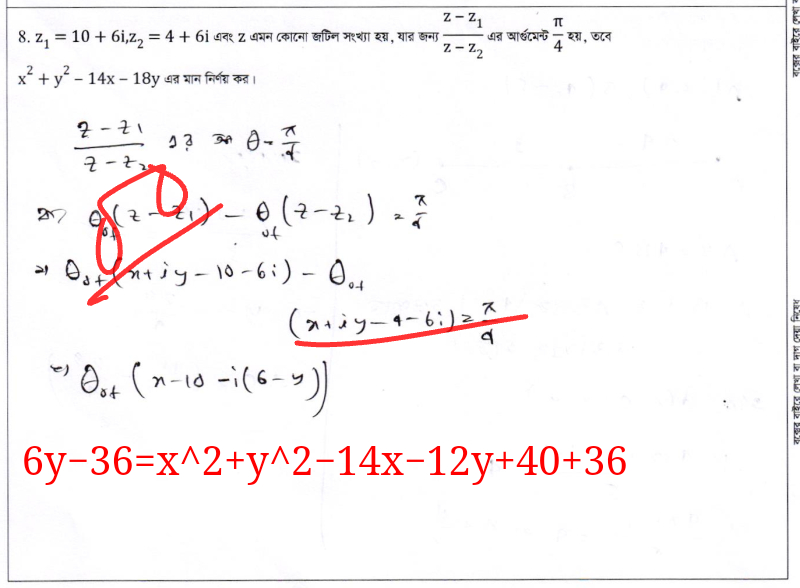 8. z₁ = 10 + 6i,z₂ = 4 + 6i এবং z এমন কোনো জটিল সংখ্যা হয়, যার জন্য (z − z₁)/(z − z₂) এর আর্গুমেন্ট π/4 হয়, তবে
x² + y² − 14x − 18y এর মান নির্ণয় কর।
(z − z₁)/(z − z₂) এর θ = π/4
θof (z − z₁) − θof (z − z₂) = π/4
⇒ θof (x + iy − 10 − 6i) − θof
(x + iy − 4 − 6i) = π/4
⇒ θof (x − 10 − i(6 − y))
6y−36=x^2+y^2−14x−12y+40+36